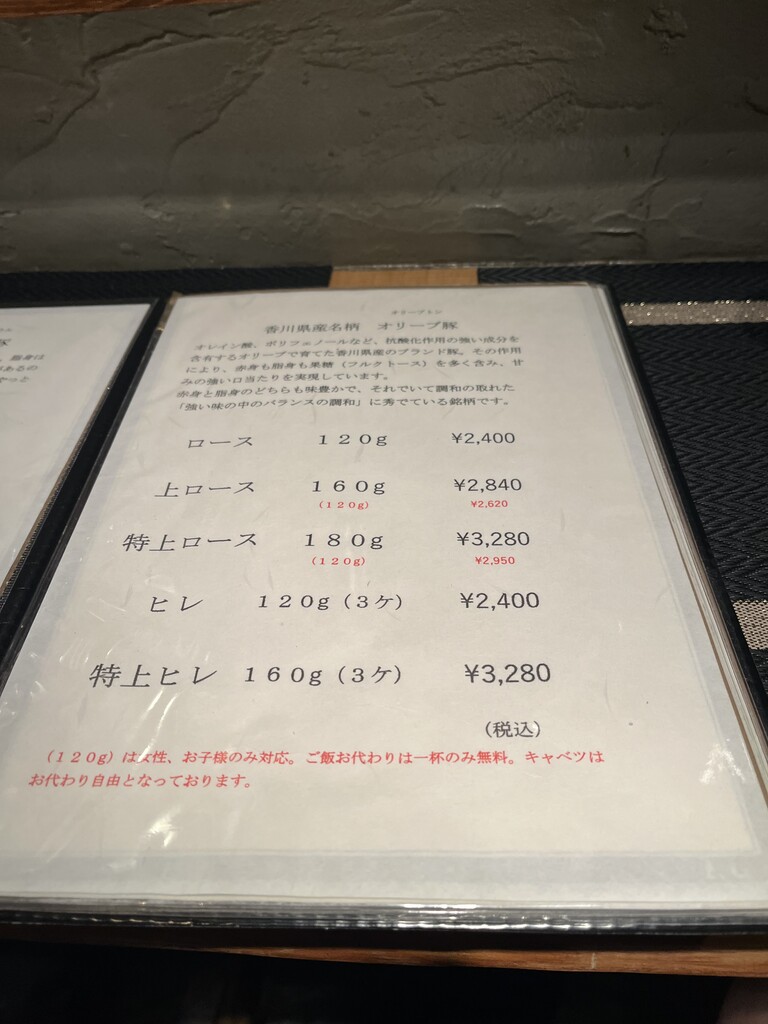 オリーブトン
香川県産名柄 オリーブ豚
オレイン酸、ポリフェノールなど、抗酸化作用の強い成分を
含有するオリーブで育てた香川県産のブランド豚。その作用
により、赤身も脂身も果糖（フルクトース）を多く含み、甘
みの強い口当たりを実現しています。
赤身と脂身のどちらも味豊かで、それでいて調和の取れた
「強い味の中のバランスの調和」に秀でている銘柄です。
ロース １２０g ¥2,400
上ロース １６０g ¥2,840
（１２０g） ¥2,620
特上ロース １８０g ¥3,280
（１２０g） ¥2,950
ヒレ １２０g（３ケ） ¥2,400
特上ヒレ １６０g（３ケ） ¥3,280
（税込）
（１２０g）は女性、お子様のみ対応。ご飯お代わりは一杯のみ無料。キャベツは
お代わり自由となっております。
豚
、脂身は
があるの
やっと